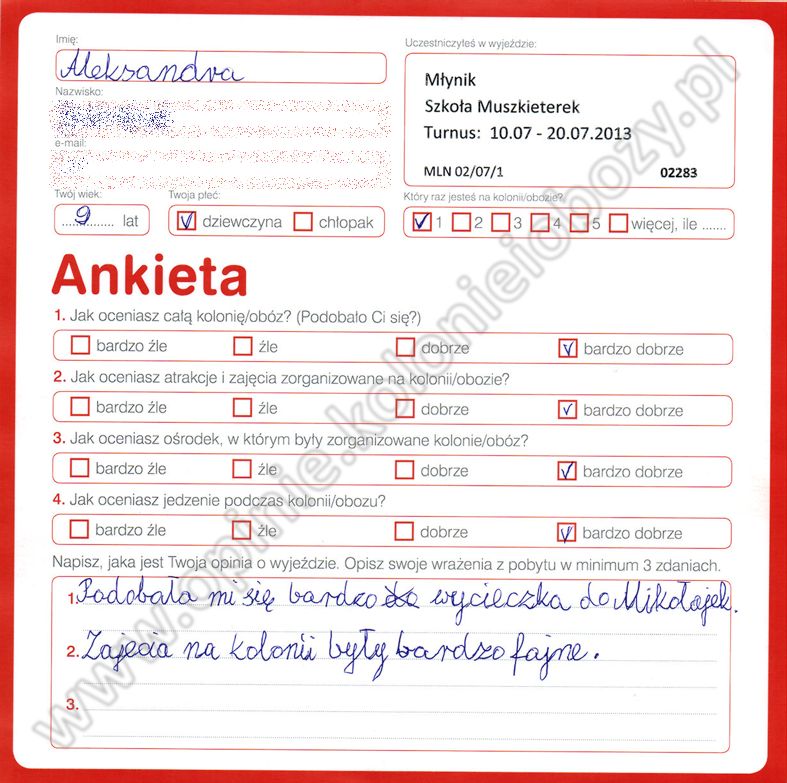 Imię:
Aleksandra
Nazwisko:
e-mail:
Twój wiek:
9 lat
Twoja płeć:
dziewczyna chłopak
Uczestniczyłeś w wyjeździe:
Młynik
Szkoła Muszkieterek
Turnus: 10.07 - 20.07.2013
MLN 02/07/1 02283
Który raz jesteś na kolonii/obozie?
1 2 3 4 5 więcej, ile .......
Ankieta
1. Jak oceniasz całą kolonię/obóz? (Podobało Ci się?)
bardzo źle źle dobrze bardzo dobrze
2. Jak oceniasz atrakcje i zajęcia zorganizowane na kolonii/obozie?
bardzo źle źle dobrze bardzo dobrze
3. Jak oceniasz ośrodek, w którym były zorganizowane kolonie/obóz?
bardzo źle źle dobrze bardzo dobrze
4. Jak oceniasz jedzenie podczas kolonii/obozu?
bardzo źle źle dobrze bardzo dobrze
Napisz, jaka jest Twoja opinia o wyjeździe. Opisz swoje wrażenia z pobytu w minimum 3 zdaniach.
1. Podobała mi się bardzo wycieczka do Mikołajek.
2. Zajęcia na kolonii były bardzo fajne.
3.
www.opinie.kolonieiobozy.pl